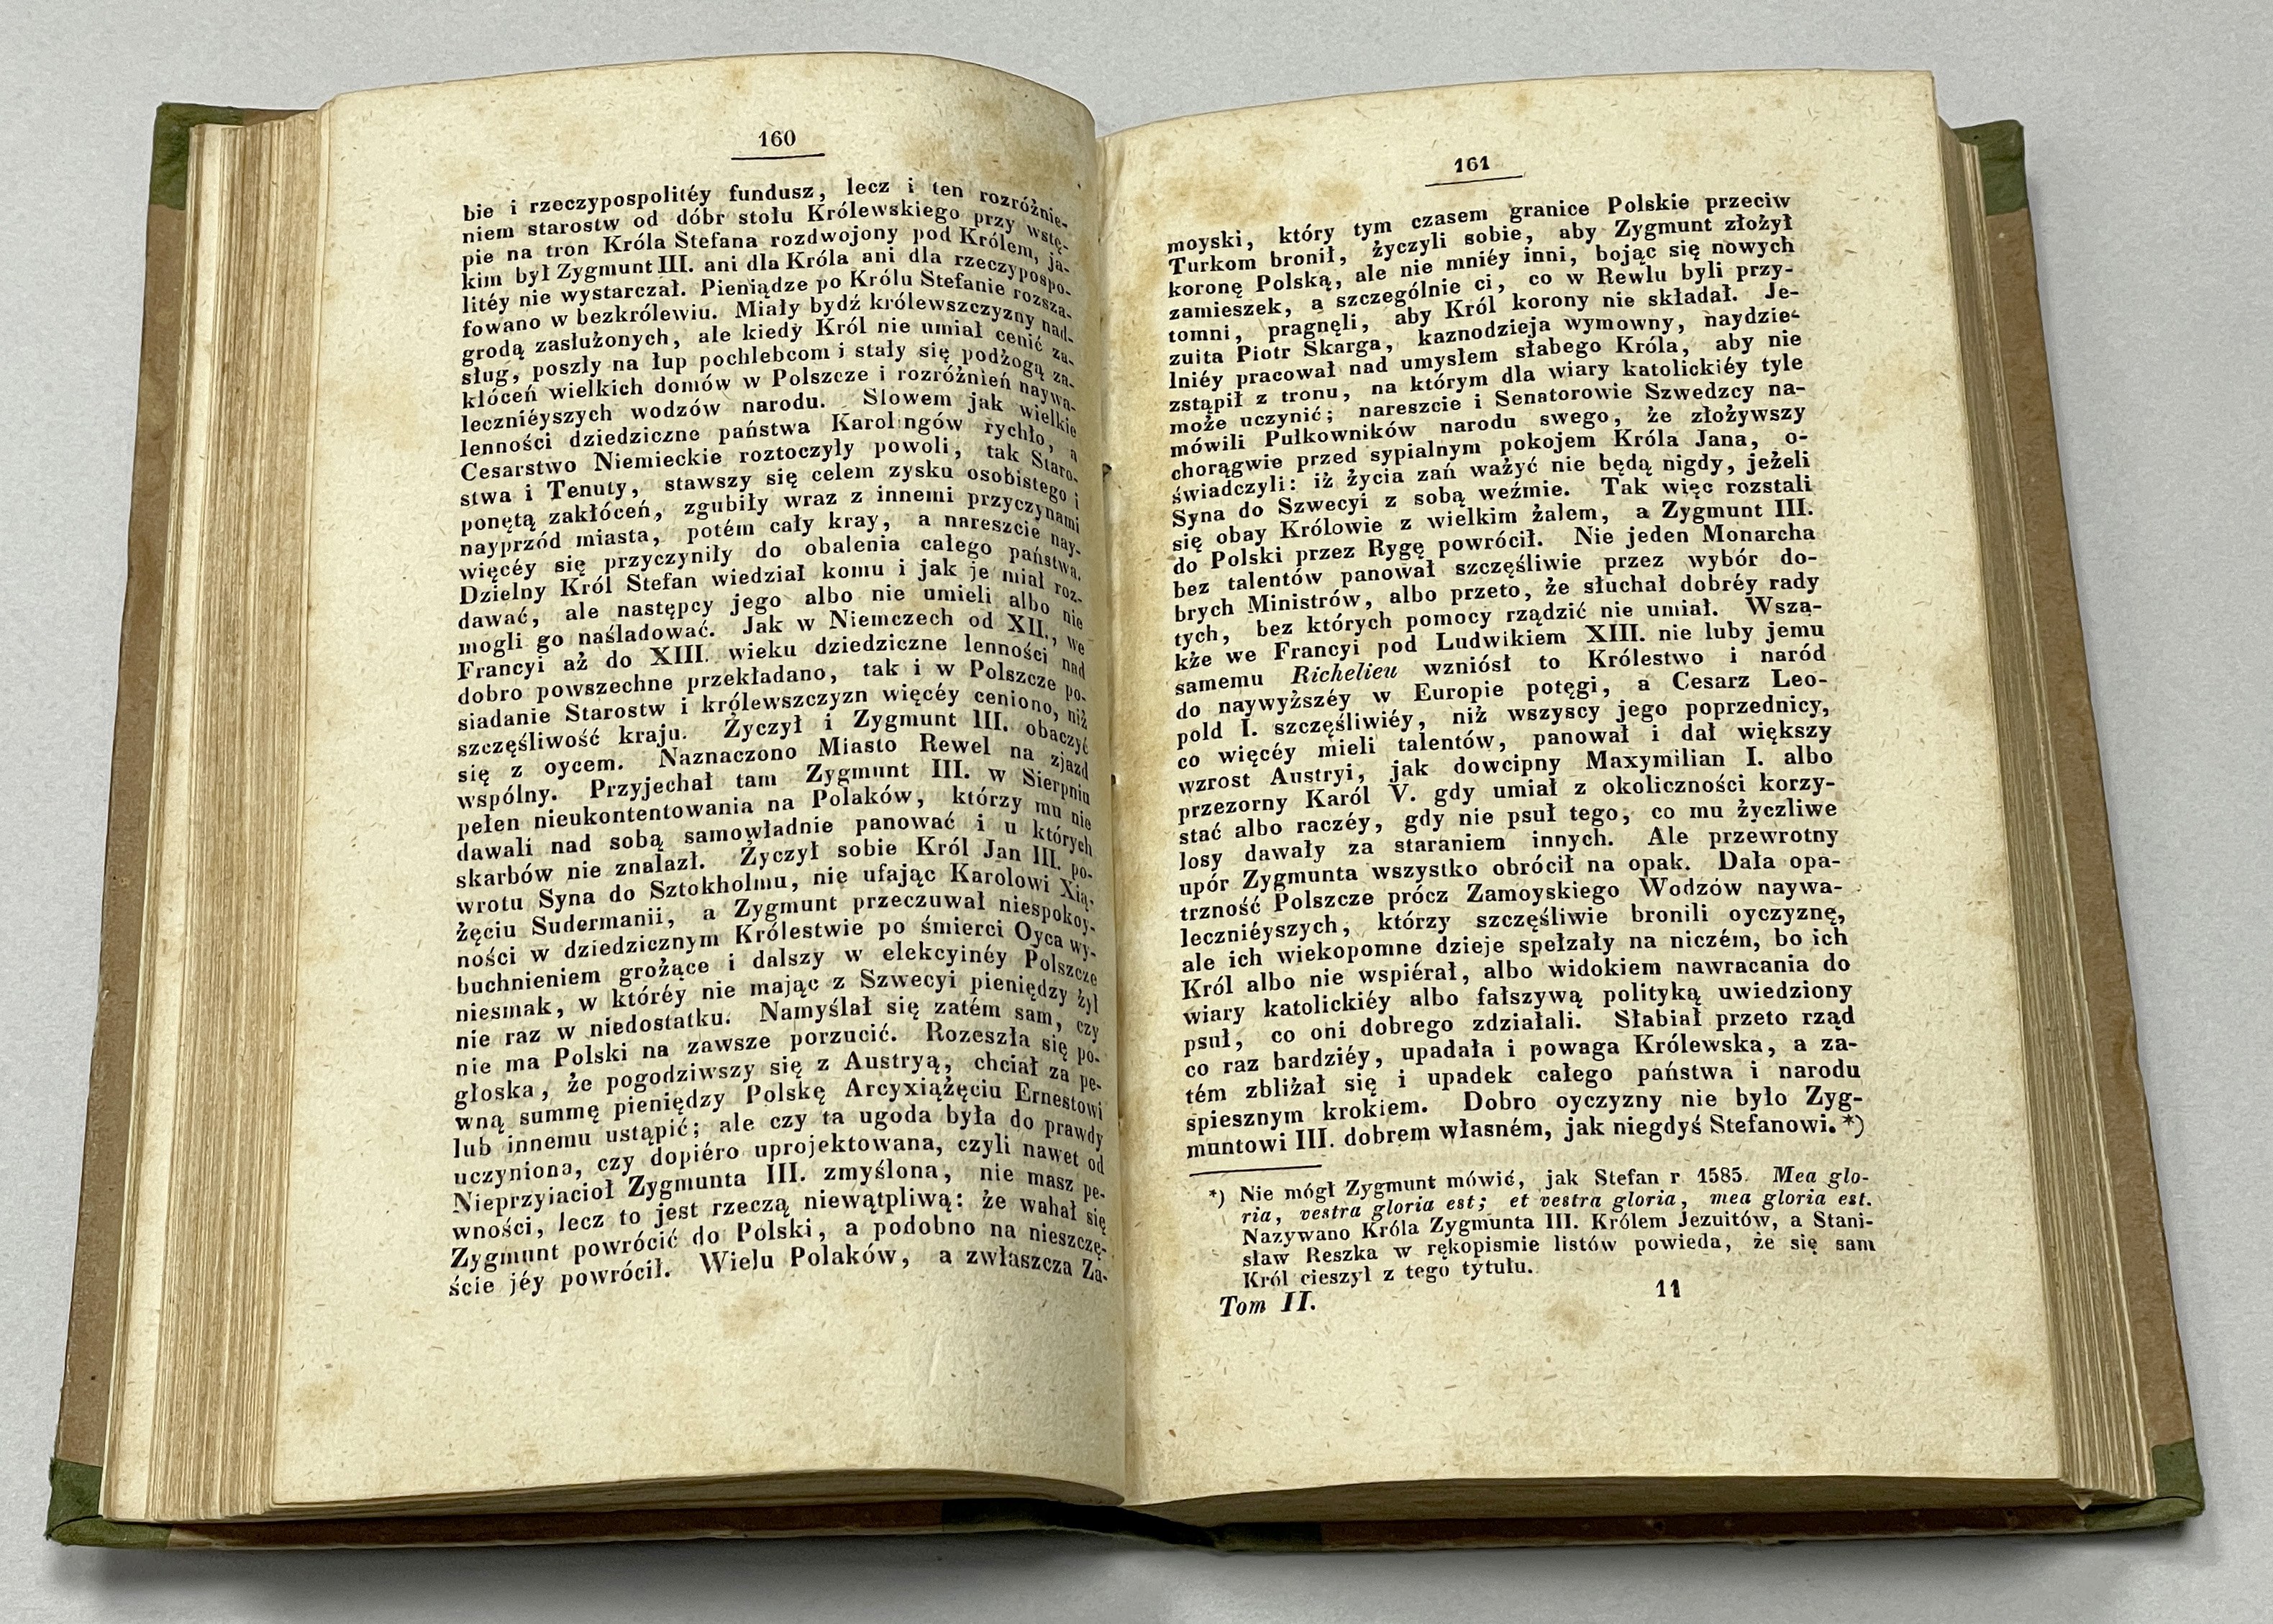 160
bie i rzeczypospolitéy fundusz, lecz i ten rozróżnie-
niem starostw od dóbr stołu Królewskiego przy wstę-
pie na tron Króla Stefana rozdwojony pod Królem, ja-
kim był Zygmunt III. ani dla Króla ani dla rzeczypospo-
litéy nie wystarczał. Pieniądze po Królu Stefanie rozsza-
fowano w bezkrólewiu. Miały bydź królewszczyzny nad-
grodą zasłużonych, ale kiedy Król nie umiał cenić za-
sług, poszły na łup pochlebcom i stały się podżogą za-
kłóceń wielkich domów w Polszcze i rozróżnień naywa-
leczniéyszych wodzów narodu. Słowem jak wielkie
lenności dziedziczne państwa Karolingów rychło, a
Cesarstwo Niemieckie roztoczyły powoli, tak Staro-
stwa i Tenuty, stawszy się celem zysku osobistego i
ponętą zakłóceń, zgubiły wraz z innemi przyczynami
nayprzód miasta, potém cały kray, a nareszcie nay-
więcéy się przyczyniły do obalenia całego państwa.
Dzielny Król Stefan wiedział komu i jak je miał roz-
dawać, ale następcy jego albo nie umieli albo nie
mogli go naśladować. Jak w Niemczech od XII., we
Francyi aż do XIII. wieku dziedziczne lenności nad
dobro powszechne przekładano, tak i w Polszcze po-
siadanie Starostw i królewszczyzn więcéy ceniono, niż
szczęśliwość kraju. Życzył i Zygmunt III. obaczyć
się z oycem. Naznaczono Miasto Rewel na zjazd
wspólny. Przyjechał tam Zygmunt III. w Sierpniu
pełen nieukontentowania na Polaków, którzy mu nie
dawali nad sobą samowładnie panować i u których
skarbów nie znalazł. Życzył sobie Król Jan III. po-
wrotu Syna do Sztokholmu, nie ufając Karolowi Xią-
żęciu Sudermanii, a Zygmunt przeczuwał niespokoy-
ności w dziedzicznym Królestwie po śmierci Oyca wy-
buchnieniem grożące i dalszy w elekcyinéy Polszcze
niesmak, w któréy nie mając z Szwecyi pieniędzy żył
nie raz w niedostatku. Namyślał się zatém sam, czy
nie ma Polski na zawsze porzucić. Rozeszła się po-
głoska, że pogodziwszy się z Austryą, chciał za pe-
wną summę pieniędzy Polskę Arcyxiążęciu Ernestowi
lub innemu ustąpić; ale czy ta ugoda była do prawdy
uczyniona, czy dopiéro uprojektowana, czyli nawet od
Nieprzyiacioł Zygmunta III. zmyślona, nie masz pe-
wności, lecz to jest rzeczą niewątpliwą: że wahał się
Zygmunt powrócić do Polski, a podobno na nieszczę-
ście jéy powrócił. Wielu Polaków, a zwłaszcza Za-
161
moyski, który tym czasem granice Polskie przeciw
Turkom bronił, życzyli sobie, aby Zygmunt złożył
koronę Polską, ale nie mniéy inni, bojąc się nowych
zamieszek, a szczególnie ci, co w Rewlu byli przy-
tomni, pragnęli, aby Król korony nie składał. Je-
zuita Piotr Skarga, kaznodzieja wymowny, naydzie-
lniéy pracował nad umysłem słabego Króla, aby nie
zstąpił z tronu, na którym dla wiary katolickiéy tyle
może uczynić; nareszcie i Senatorowie Szwedzcy na-
mówili Pułkowników narodu swego, że złożywszy
chorągwie przed sypialnym pokojem Króla Jana, o-
świadczyli: iż życia zań ważyć nie będą nigdy, jeżeli
Syna do Szwecyi z sobą weźmie. Tak więc rozstali
się obay Królowie z wielkim żalem, a Zygmunt III.
do Polski przez Rygę powrócił. Nie jeden Monarcha
bez talentów panował szczęśliwie przez wybór do-
brych Ministrów, albo przeto, że słuchał dobréy rady
tych, bez których pomocy rządzić nie umiał. Wsza-
kże we Francyi pod Ludwikiem XIII. nie luby jemu
samemu Richelieu wzniósł to Królestwo i naród
do naywyższéy w Europie potęgi, a Cesarz Leo-
pold I. szczęśliwiéy, niż wszyscy jego poprzednicy,
co więcéy mieli talentów, panował i dał większy
wzrost Austryi, jak dowcipny Maxymilian I. albo
przezorny Karól V. gdy umiał z okoliczności korzy-
stać albo raczéy, gdy nie psuł tego, co mu życzliwe
losy dawały za staraniem innych. Ale przewrotny
upór Zygmunta wszystko obrócił na opak. Dała opa-
trzność Polszcze prócz Zamoyskiego Wodzów naywa-
leczniéyszych, którzy szczęśliwie bronili oyczyznę,
ale ich wiekopomne dzieje spełzały na niczém, bo ich
Król albo nie wspiérał, albo widokiem nawracania do
wiary katolickiéy albo fałszywą polityką uwiedziony
psuł, co oni dobrego zdziałali. Słabiał przeto rząd
co raz bardziéy, upadała i powaga Królewska, a za-
tém zbliżał się i upadek całego państwa i narodu
spiesznym krokiem. Dobro oyczyzny nie było Zyg-
muntowi III. dobrem własném, jak niegdyś Stefanowi. *)
*) Nie mógł Zygmunt mówić, jak Stefan r 1585. Mea glo-
ria, vestra gloria est; et vestra gloria, mea gloria est.
Nazywano Króla Zygmunta III. Królem Jezuitów, a Stani-
sław Reszka w rękopismie listów powieda, że się sam
Król cieszył z tego tytułu.
Tom II. 11